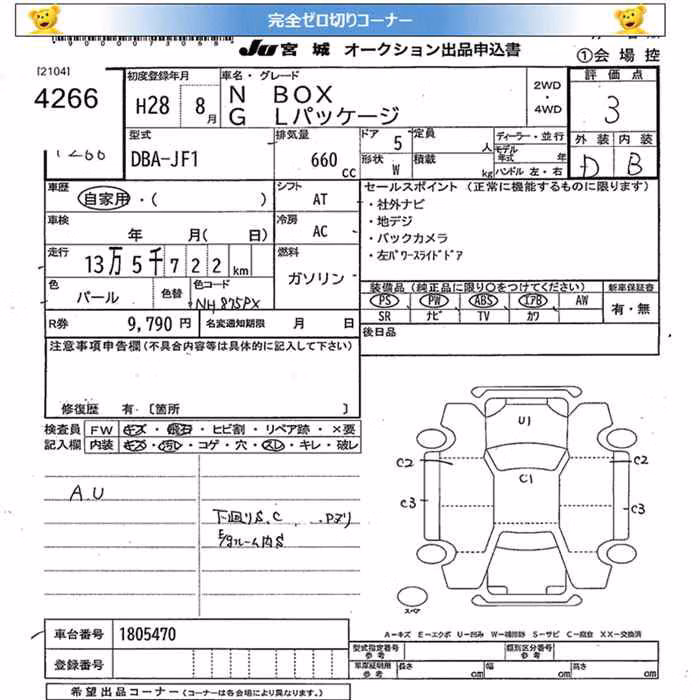 完全ゼロ切りコーナー
JU 宮城 オークション出品申込書
①会場控
[2104]
4266
初度登録年月
H28 8月
車名・グレード
N BOX
G Lパッケージ
2WD
・
4WD
評価点
3
外装 内装
D B
型式
DBA-JF1
排気量
660 cc
ドア 5
形状 W
定員 人
積載 kg
ディーラー・並行
モデル年式 年
ハンドル 左・右
車歴
自家用・( )
シフト
AT
車検
年 月( 日)
冷房
AC
走行
13万5千722km
燃料
ガソリン
色
パール
色替
色コード
NH875PX
R券
9,790 円
名変通知期限 月 日
セールスポイント (正常に機能するものに限ります)
・社外ナビ
・地デジ
・バックカメラ
・左パワースライドドア
装備品 (純正品に限り○をつけてください)
PS PW ABS エアB AW
SR ナビ TV カワ
新車保証書
有・無
後日品
注意事項申告欄(不具合内容等は具体的に記入して下さい)
修復歴 有. [箇所 ]
検査員 FW キズ・飛石・ヒビ割・リペア跡・×要
記入欄 内装 キズ・汚れ・コゲ・穴・スレ・キレ・破レ
A.U
下回りS.C
E/gルーム内S
U1
C2
C1
C2
C3
C3
スペア
A－キズ E－エクボ U－凹み W－補修跡 S－サビ C－腐食 XX－交換済
車台番号 1805470
登録番号
型式指定番号 参考
類別区分番号 参考
車庫証明用 参考 長さ cm 幅 cm 高さ cm
希望出品コーナー (コーナーは各会場により異なります。)